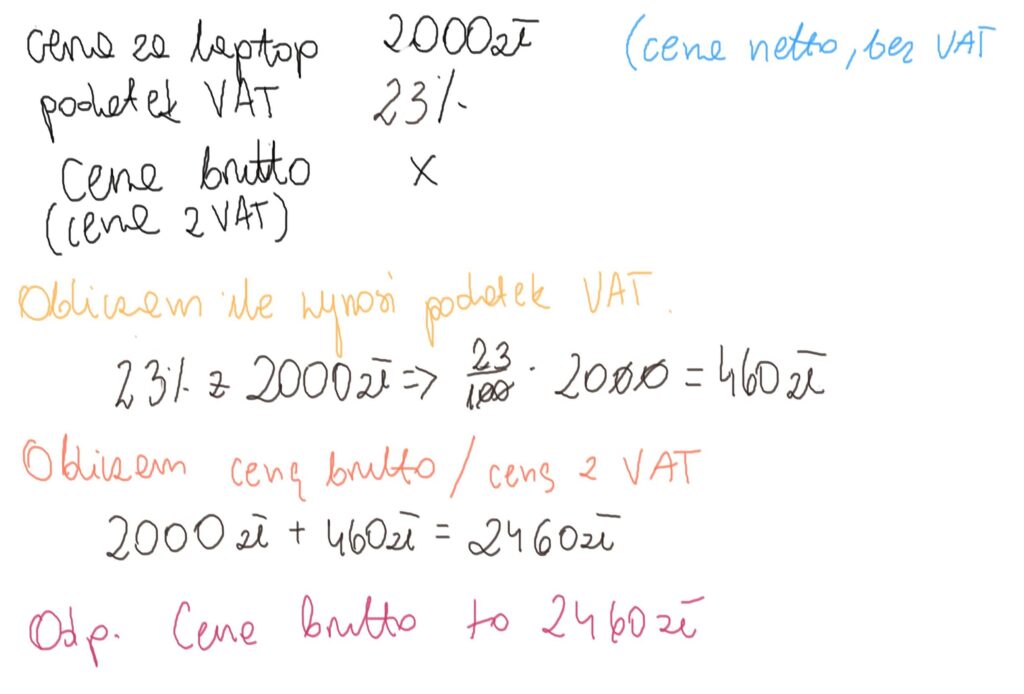 cena za laptop 2000zł (cena netto, bez VAT
podatek VAT 23%
Cena brutto x
(cena z VAT)
Obliczam ile wynosi podatek VAT.
23% z 2000zł => 23/100 · 2000 = 460zł
Obliczam cenę brutto / cenę z VAT
2000zł + 460zł = 2460zł
Odp. Cena brutto to 2460zł